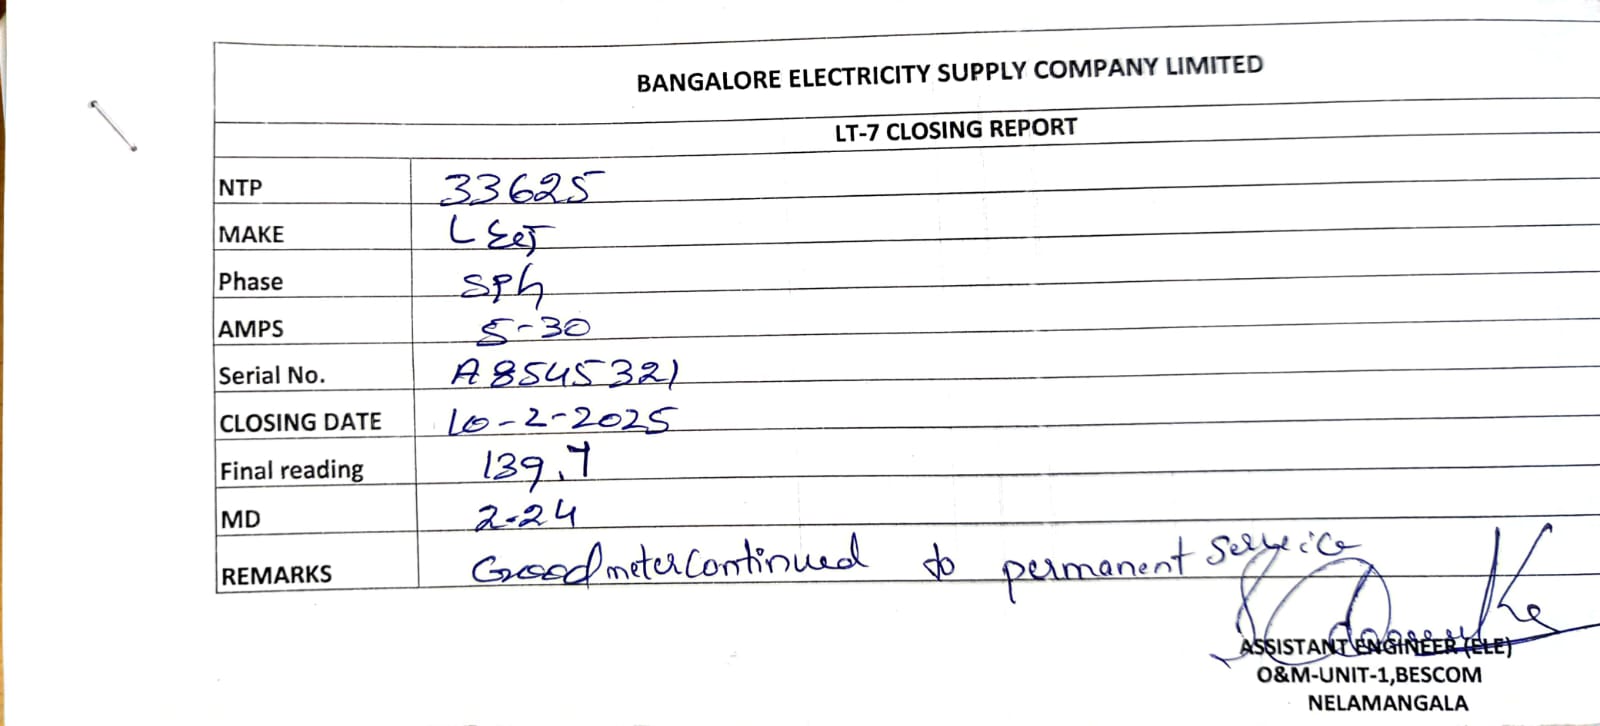 BANGALORE ELECTRICITY SUPPLY COMPANY LIMITED
LT-7 CLOSING REPORT
NTP 33625
MAKE L&T
Phase SPh
AMPS 5-30
Serial No. A8545321
CLOSING DATE 10-2-2025
Final reading 139.7
MD 2-24
REMARKS Good meter continued to permanent service
ASSISTANT ENGINEER (ELE)
O&M-UNIT-1,BESCOM
NELAMANGALA